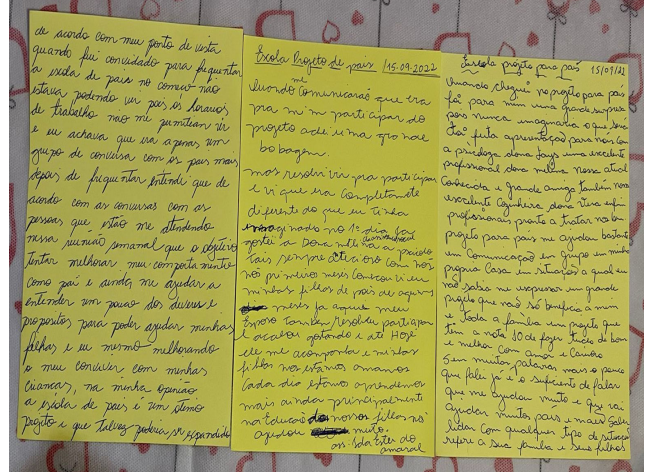 de acordo com meu ponto de vista
quando fui convidado para frequentar
a escola de pais no começo não
estava podendo vir pois os horarios
de trabalho não me permitiam vir
e eu achava que era apenas um
grupo de conversa com os pais mais
depois de frequentar entendi que de
acordo com as conversas com as
pessoas que estão me atendendo
nessa reunião semanal que o objetivo
tentar melhorar meu comportamento
como pai e ainda me ajudar a
entender um pouco dos deveres e
propositos para poder ajudar minhas
filhas e eu mesmo melhorando
o meu conviver com minhas
crianças, na minha opinião
a escola de pais é um otimo
projeto e que talvez poderia ser expandido
Escola Projeto de pais /15-09-2022
me
quando comunicarão que era
pra mim participar do
projeto achei uma grande
bobagem.
mas resolvi vir pra participar
e vi que era completamente
diferente do que eu tinha
imaginado no 1º dia ja
gostei a Dona
Tais sempre atencioso com nós
nos primeiros meses comecou vi eu
minhas filhas de pois de alguns
meses ja aqui meu
Esposo tambem resolveu participar
e acabou gostando e até Hoje
ele me acompanha e nistas
filhas nos estamos amanos
Cada dia estamos aprendemos
mais ainda principalmente
na Educação dos nossos filhos nos
ajudou muito.
ass:
amaral
Escola projeto para pais 15/09/22
Quando cheguei no projeto para pais
foi para mim uma grande surpresa
pois nunca imaginaria o que seria
feita apresentação para nós com
a psicologa dona Tays uma excelente
profissional dona nessa atual
e grande amiga também nossa
excelente cozinheira dona enfim
profissionais pronto a tratar no
projeto para pais me ajudou bastante
em Comunicação em grupo em minha
própria Casa em situações a qual eu
não sabia me expressar um grande
projeto que não só beneficia a mim
e toda a familia um projeto que
tem a nota 10 de fazer tudo de bom
e melhor com amor e Carinho
Sem muitas palavras mais o pouco
que falei já e o suficiente de falar
que me ajudou muito e que vai
ajudar muitos pais e mães saber
lidar com qualquer tipo de situação
refere a sua familia e seus filhos